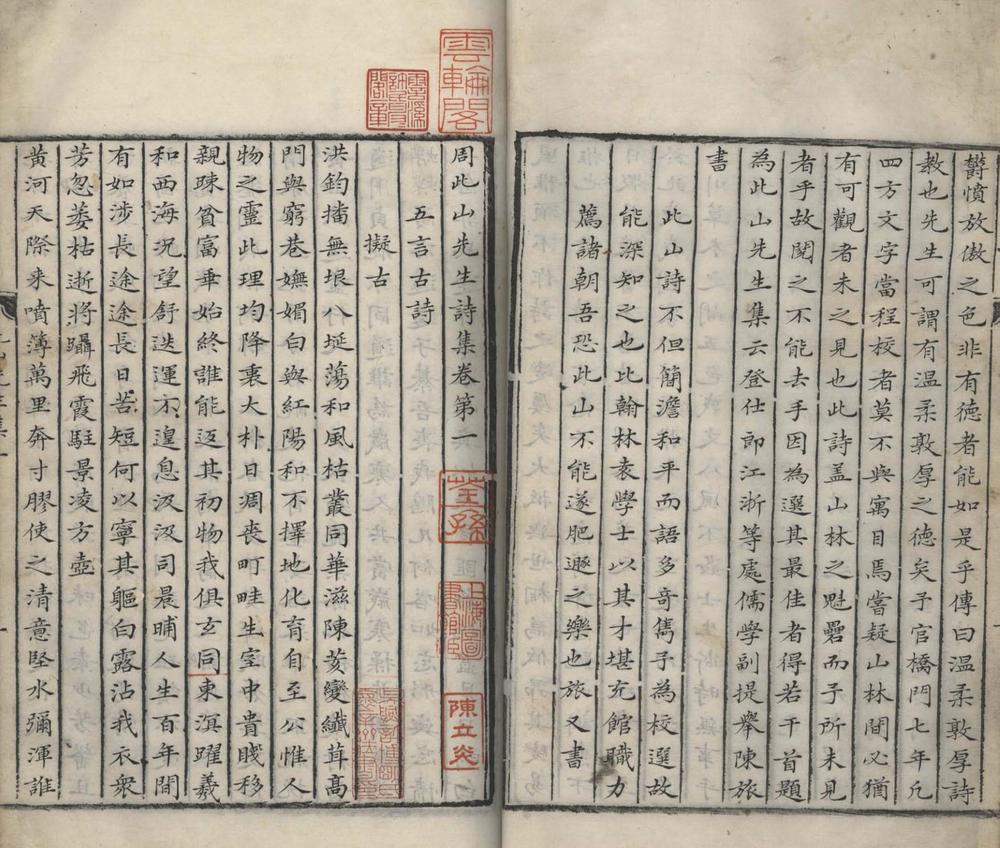 欝憤放傲之色非有德者能如是乎傳曰温柔敦厚詩
教也先生可謂有温柔敦厚之德矣予官橋門七年凡
四方文字當程校者莫不與寓目焉嘗疑山林間必猶
有可觀者未之見也此詩盖山林之魁礨而予所未見
者乎故閱之不能去手因為選其最佳者得若干首題
為此山先生集云登仕郎江浙等處儒學副提舉陳旅
書
此山詩不但簡澹和平而語多奇雋予為校選故
能深知之也比翰林袁學士以其才堪充館職力
薦諸朝吾恐此山不能遂肥遯之樂也旅又書
雲輪閣
周此山先生詩集卷第一
荃孫
上海圖書館藏
陳立炎
五言古詩
擬古
洪鈞播無垠八埏蕩和風枯叢同華滋陳荄變纖茸高
門與窮巷嫵媚白與紅陽和不擇地化育自至公惟人
物之靈此理均降衷大朴日凋喪町畦生室中貴賤移
親踈貧富畢始終誰能迈其初物我俱玄同東溟躍羲
和西海況望舒迭運不遑息汲汲司晨晡人生百年間
有如涉長途途長日苦短何以寧其軀白露沾我衣衆
芳忽萎枯逝將躡飛霞駐景凌方壺
黄河天際来噴薄萬里奔寸膠使之清意堅水彌渾誰